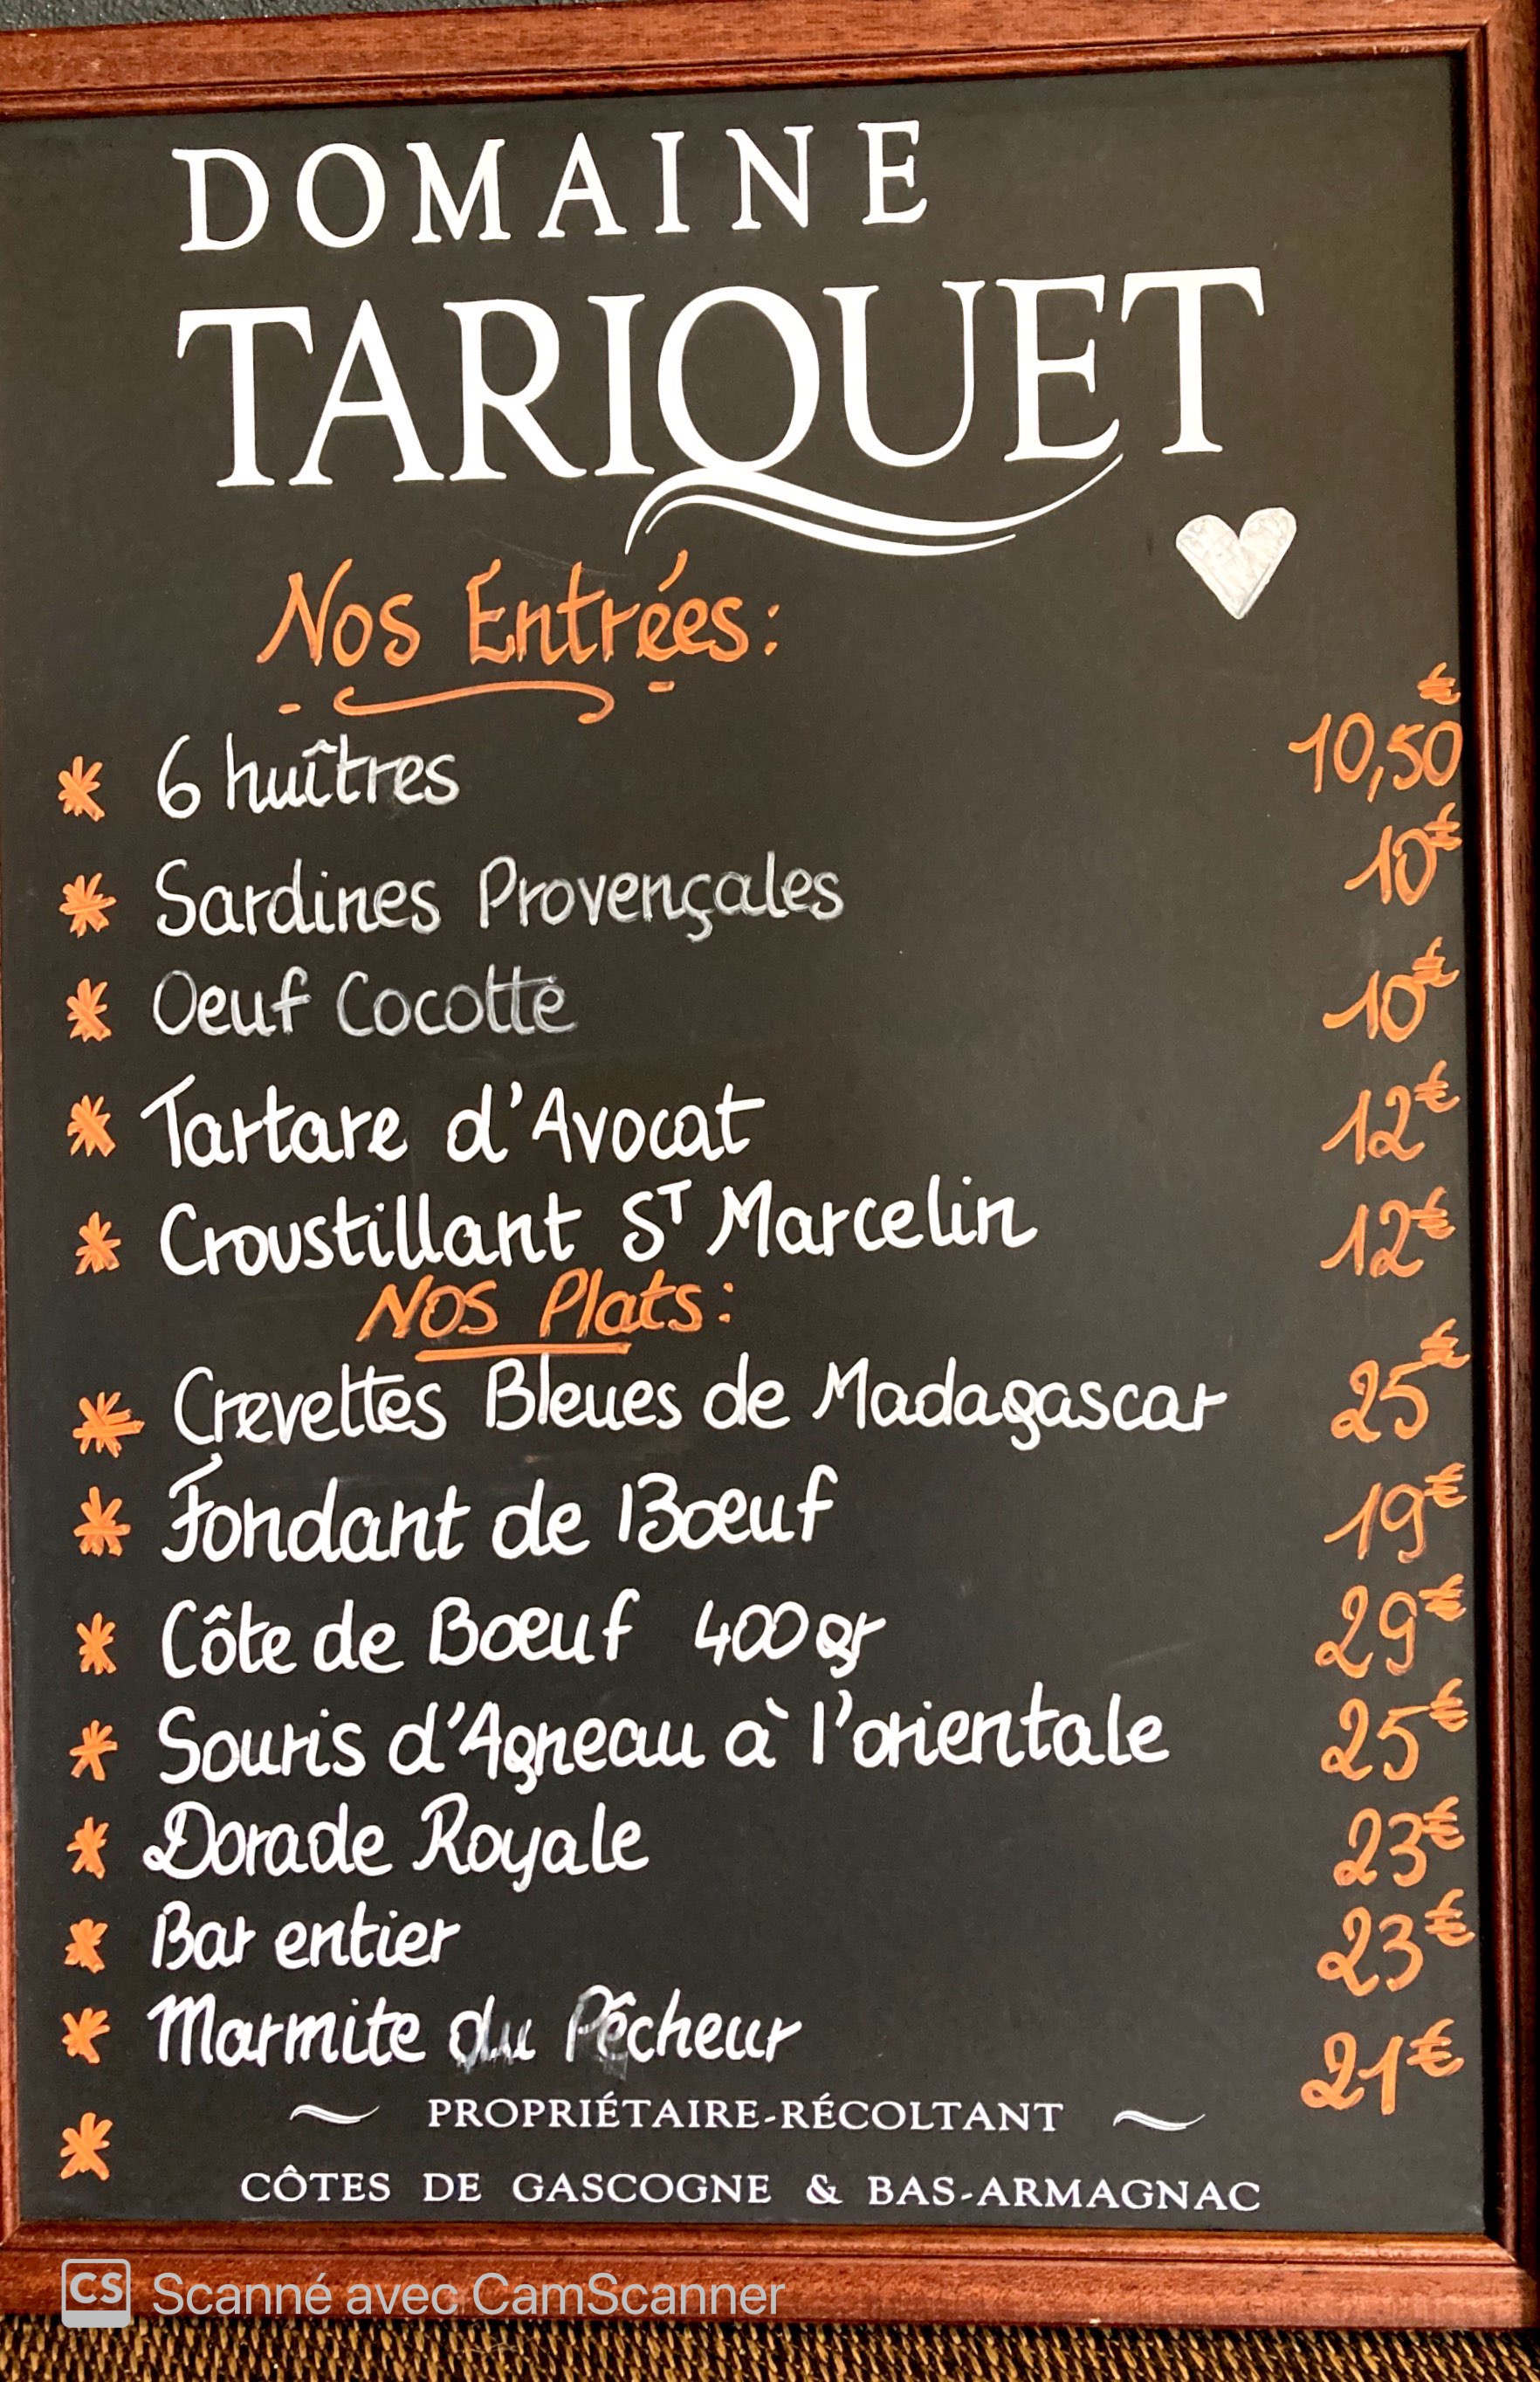 DOMAINE
TARIQUET
Nos Entrées:
* 6 huîtres 10,50€
* Sardines Provençales 10€
* Oeuf Cocotte 10€
* Tartare d'Avocat 12€
* Croustillant ST Marcelin 12€
Nos Plats:
* Crevettes Bleues de Madagascar 25€
* Fondant de Bœuf 19€
* Côte de Bœuf 400gr 29€
* Souris d'Agneau à l'orientale 25€
* Dorade Royale 23€
* Bar entier 23€
* Marmite du Pêcheur 21€
PROPRIÉTAIRE-RÉCOLTANT
*
CÔTES DE GASCOGNE & BAS-ARMAGNAC
CS Scanné avec CamScanner